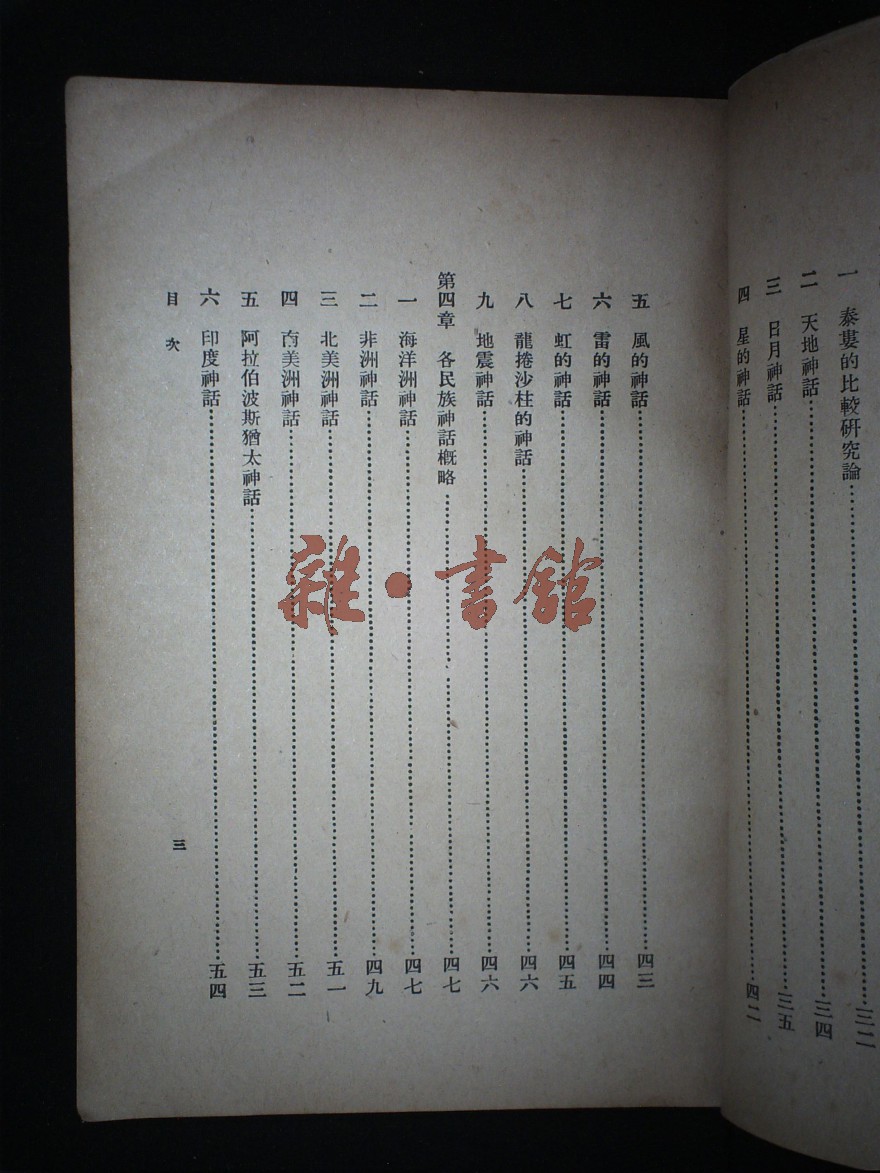 一　泰婁的比較硏究論………三二
二　天地神話………三四
三　日月神話………三五
四　星的神話………四二
五　風的神話………四三
六　雷的神話………四四
七　虹的神話………四五
八　龍捲沙柱的神話………四六
九　地震神話………四六
第四章　各民族神話概略………四七
一　海洋洲神話………四七
二　非洲神話………四九
三　北美洲神話………五一
四　南美洲神話………五二
五　阿拉伯波斯猶太神話………五三
六　印度神話………五四
目次　三
雜·書館